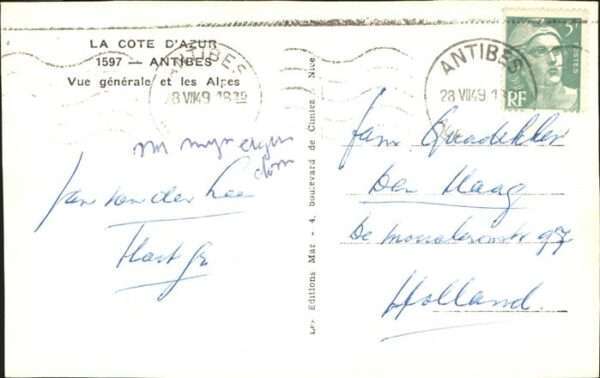 LA COTE D'AZUR
1597 — ANTIBES
Vue générale et les Alpes
ANTIBES
28 VII 49 18 30
Jan van der Lee
Les Éditions Mar - 4, boulevard de Cimiez - Nice
ANTIBES
28 VII 49 1
5F
POSTES
RF
Fam
Den Haag
De 97
Holland.